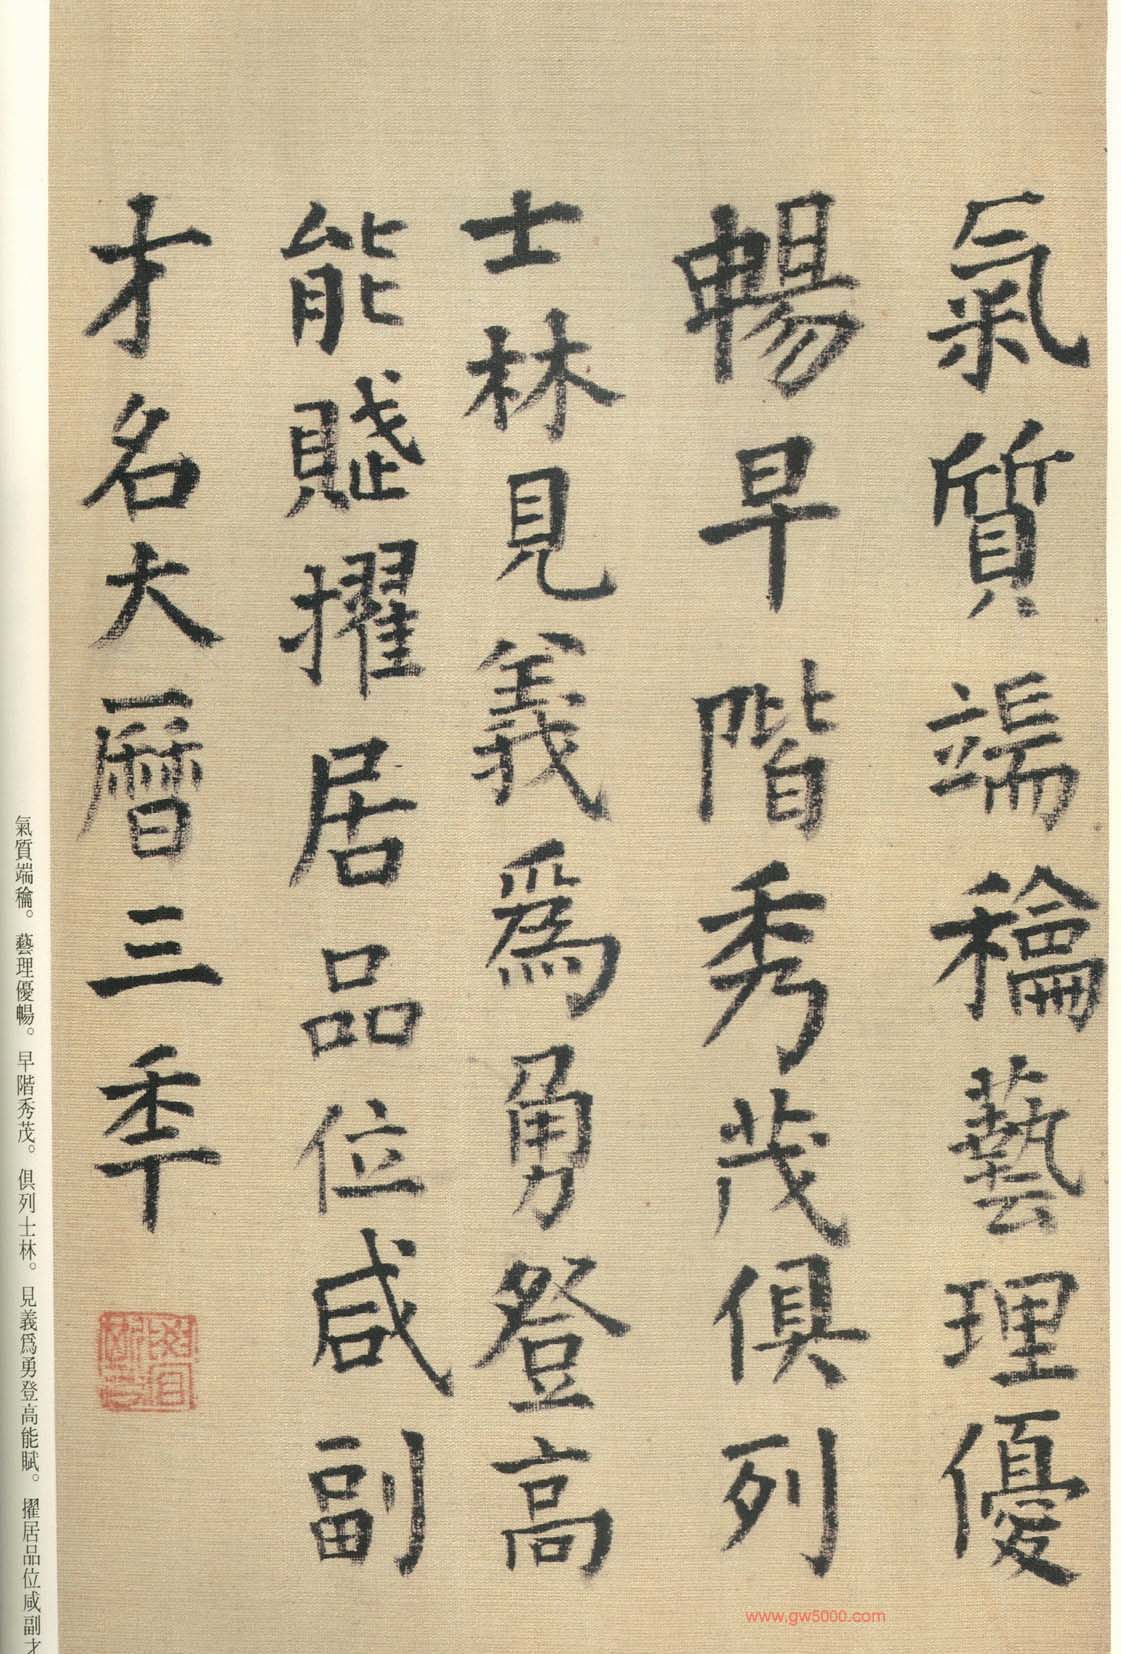 氣質端稐藝理優
暢早階秀茂俱列
士林見義爲勇登高
能賦擢居品位咸副
才名大曆三秊
氣質端稐。藝理優暢。早階秀茂。俱列士林。見義爲勇登高能賦。擢居品位咸副才
www.gw5000.com